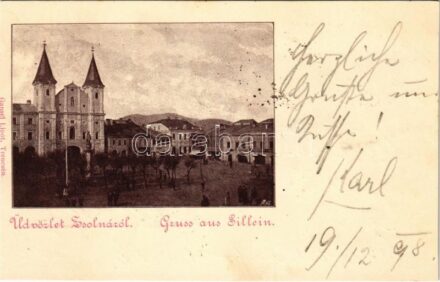 Üdvözlet Zsolnáról. Gruss aus Sillein.
Gansel Lipót, Trencsén
Herzliche
Grüsse und
Küsse!
Karl
19./12 98.
darabanth